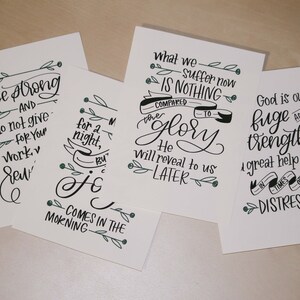 be strong
AND
do not give
for your
work
for a
night,
BU
JO
COMES IN THE
MORNING
what we
suffer now
IS NOTHING
COMPARED TO
the
glory
He
will reveal to us
LATER
God is ou
fuge a
trength
great help
IN TIMES
DISTRES